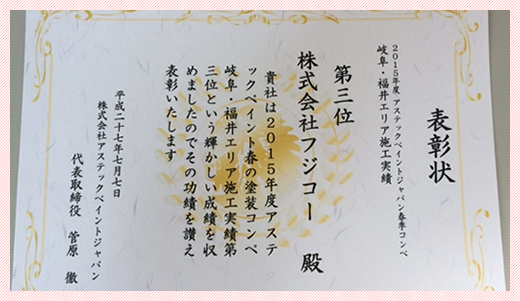 表彰状
2015年度 アステックペイントジャパン春季コンペ
岐阜・福井エリア施工実績
第三位
株式会社フジコー 殿
貴社は2015年度アステ
ックペイント春の塗装コンペ
岐阜・福井エリア施工実績第
三位という輝かしい成績を収
めましたのでその功績を讃え
表彰いたします
平成二十七年七月七日
株式会社アステックペイントジャパン
代表取締役 菅原 徹